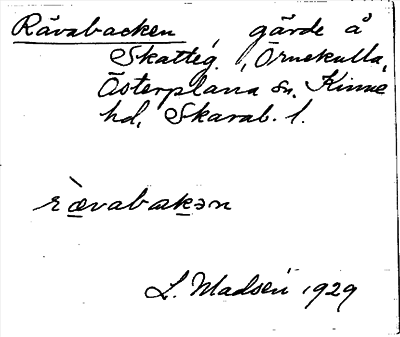 Rävabacken, gärde å
Skatteg., Örnekulla,
Österplana sn. Kinne
hd, Skarab. l.
rævabakən
L. Madsén 1929